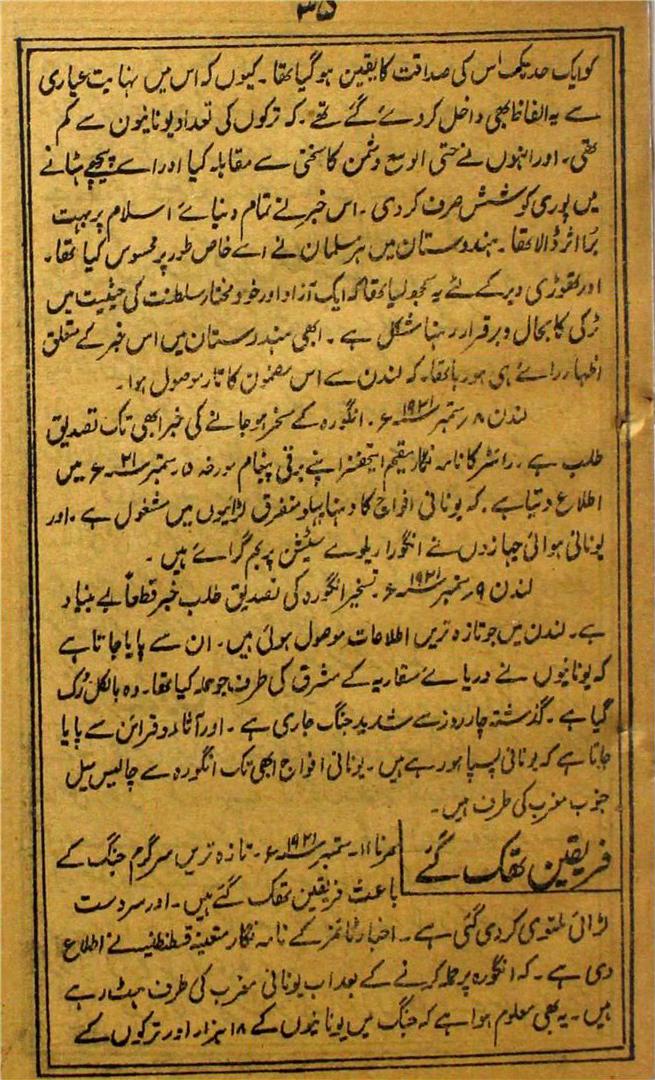 ۳۵
کو ایک حد تک اس کی صداقت کا یقین ہو گیا تھا۔ کیوں کہ اس میں نہایت عیاری
سے یہ الفاظ بھی داخل کر دئے گئے تھے۔ کہ ترکوں کی تعداد یونانیون سے کم
تھی۔ اور انہوں نے حتی الوسع دشمن کا سختی سے مقابلہ کیا اور اسے پیچھے ہٹانے
میں پوری کوشش صرف کر دی۔ اس خبر نے تمام دنیائے اسلام پر بہت
برا اثر ڈالا تھا۔ ہندوستان میں ہر مسلمان نے اسے خاص طور پر محسوس کیا تھا۔
اور تھوڑی دیر کے لئے یہ سمجھ لیا تھا کہ ایک آزاد اور خود مختار سلطنت کی حیثیت میں
ٹرکی کا بحال و برقرار رہنا مشکل ہے۔ ابھی ہندوستان میں اس خبر کے متعلق
اظہار رائے ہی ہو رہا تھا۔ کہ لندن سے اس مضمون کا تار موصول ہوا۔
لندن ۸ ستمبر ۱۹۲۱ء۔ انگورہ کے مسخر ہو جانے کی خبر ابھی تک تصدیق
طلب ہے۔ رائٹر کا نامہ نگار مقیم ایتھنز اپنے برقی پیغام مورخہ ۵ ستمبر ۲۱ء میں
اطلاع دیتا ہے۔ کہ یونانی افواج کا دہنا پہلو متفرق لڑائیوں میں مشغول ہے۔ اور
یونانی ہوائی جہازوں نے انگورا ریلوے سٹیشن پر بم گرائے ہیں۔
لندن ۹ ستمبر ۱۹۲۱ء۔ تسخیر انگورہ کی تصدیق طلب خبر قطعاً بے بنیاد
ہے۔ لندن میں جو تازہ تریں اطلاعات موصول ہوئی ہیں۔ ان سے پایا جاتا ہے
کہ یونانیوں نے دریائے سقاریہ کے مشرق کی طرف جو حملہ کیا تھا۔ وہ بالکل رُک
گیا ہے۔ گذشتہ چار روز سے شدید جنگ جاری ہے۔ اور آثار و قرائن سے پایا
جاتا ہے کہ یونانی پسپا ہو رہے ہیں۔ یونانی افواج ابھی تک انگورہ سے چالیس میل
جنوب مغرب کی طرف ہیں۔
فریقین تھک گئے
سمرنا ۱۱ ستمبر ۱۹۲۱ء۔ تازہ تریں سرگرم جنگ کے
باعث فریقین تھک گئے ہیں۔ اور سردست
لڑائی ملتوی کر دی گئی ہے۔ اخبار ٹائمز کے نامہ نگار متعینہ قسطنطنیہ نے اطلاع
دی ہے۔ کہ انگورہ پر حملہ کرنے کے بعد اب یونانی مغرب کی طرف ہٹ رہے
ہیں۔ یہ بھی معلوم ہوا ہے کہ جنگ میں یونانیوں کے ۱۸ ہزار اور ترکوں کے